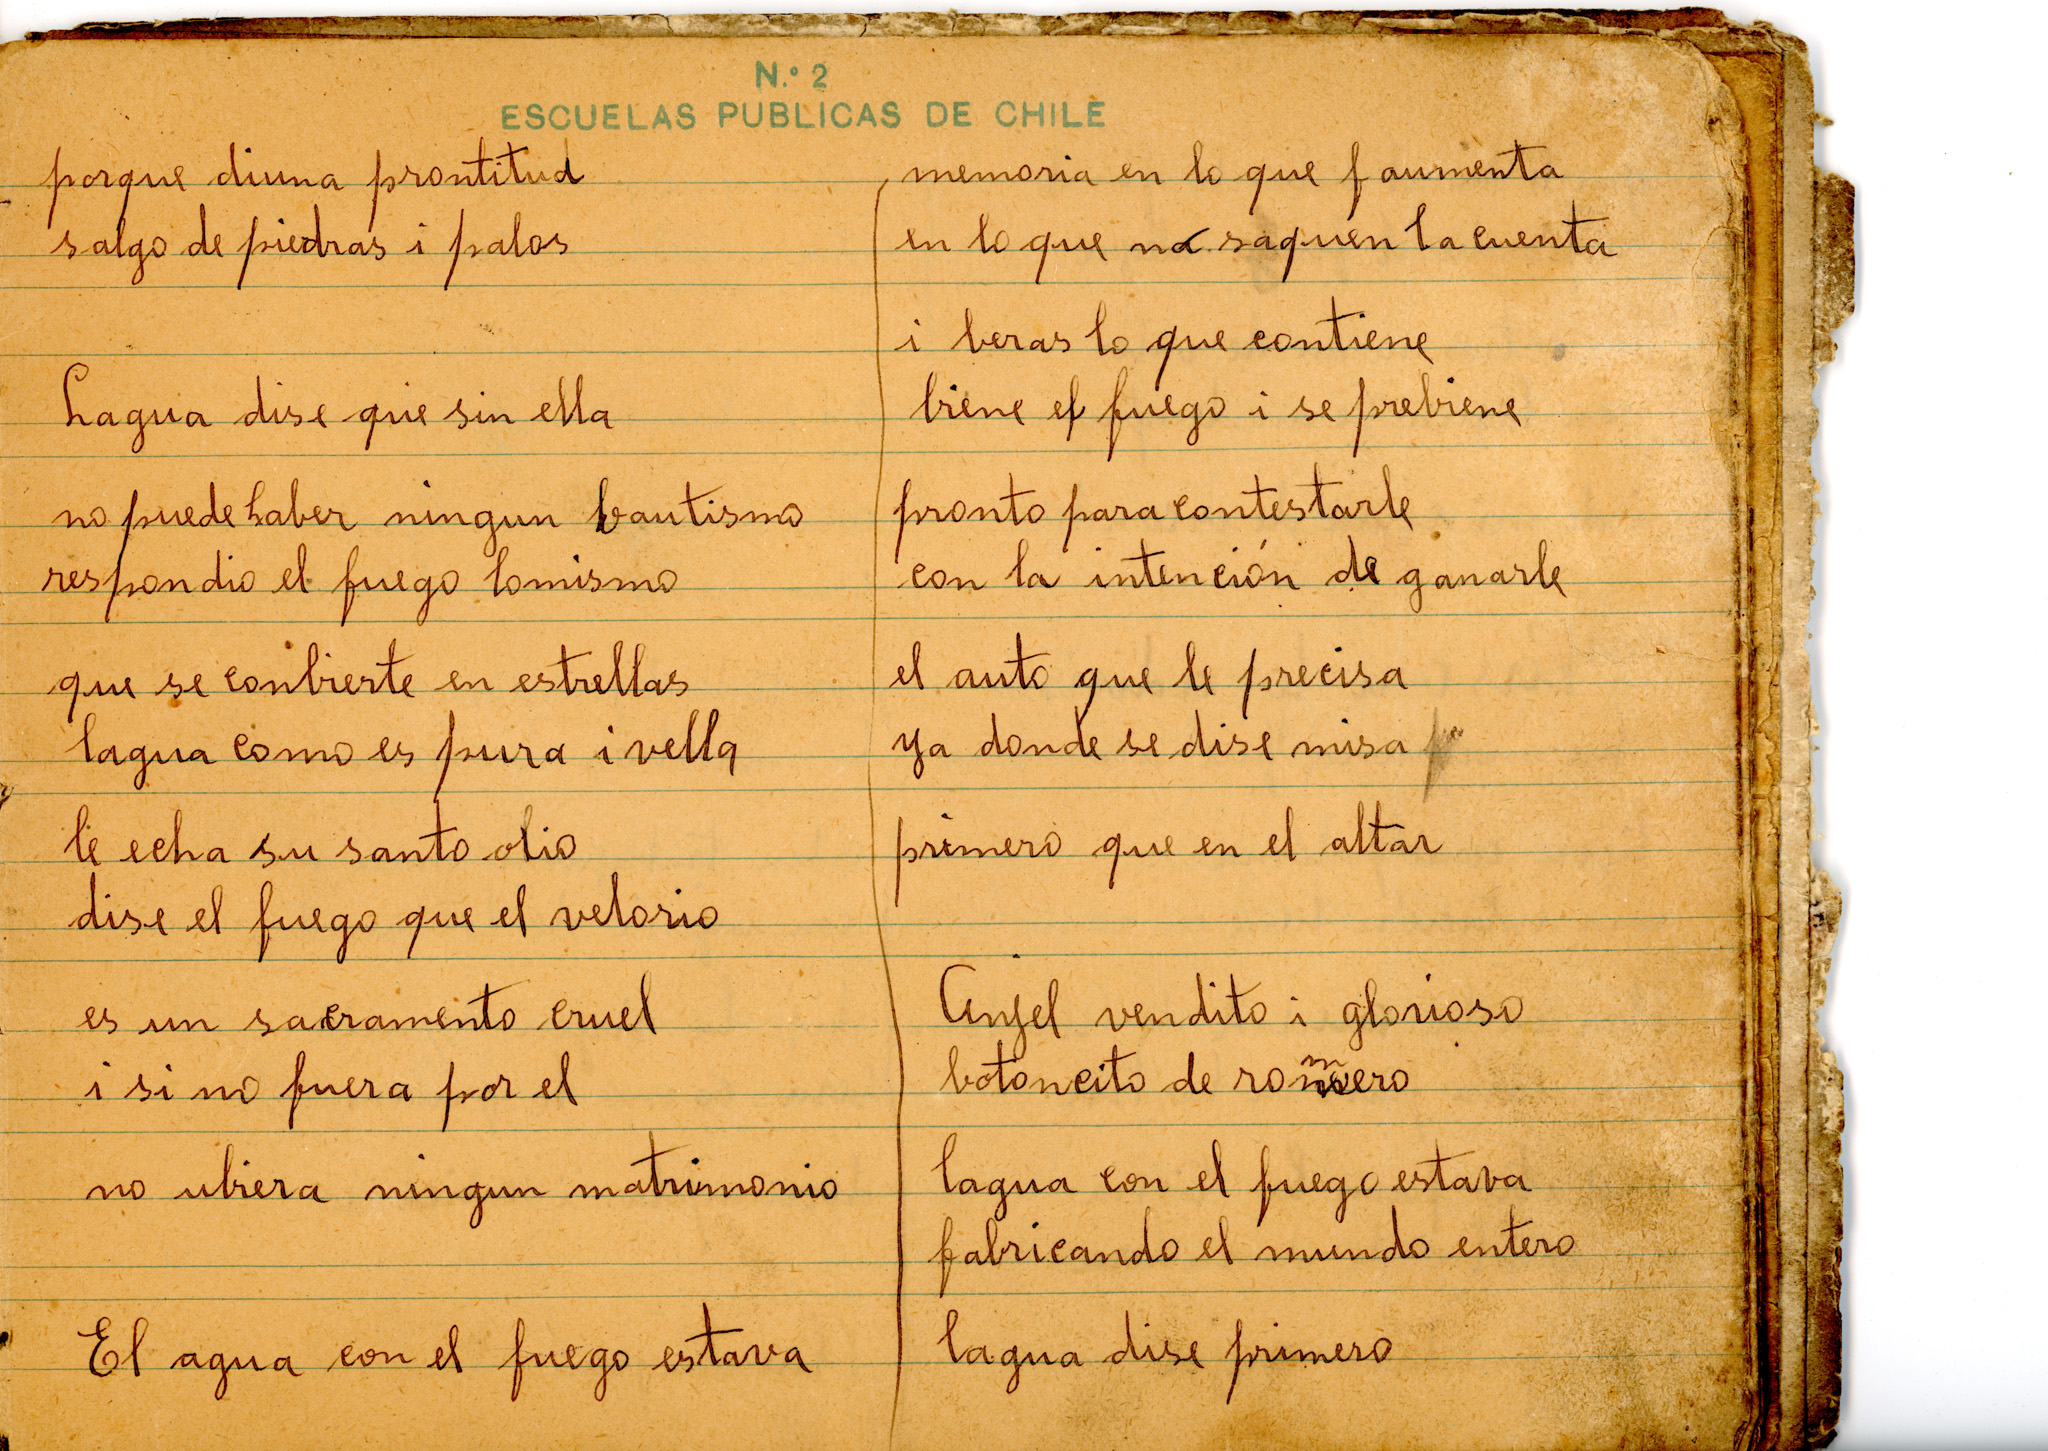 N.º 2
ESCUELAS PUBLICAS DE CHILE
porque diuna prontitud
salgo de piedras i palos
Lagua dise que sin ella
no puede haber ningun bautismo
respondio el fuego lomismo
que se conbierte en estrellas
lagua como es pura i vella
le echa su santo olio
dise el fuego que el velorio
es un sacramento cruel
i si no fuera por el
no ubiera ningun matrimonio
El agua con el fuego estava
memoria en lo que f aumenta
en lo que no saquen la cuenta
i beras lo que contiene
biene el fuego i se prebiene
pronto para contestarle
con la intención de ganarle
el auto que le precisa
ya donde se dise misa
primero que en el altar
Anjel vendito i glorioso
botoncito de romero
lagua con el fuego estava
fabricando el mundo entero
lagua dise primero